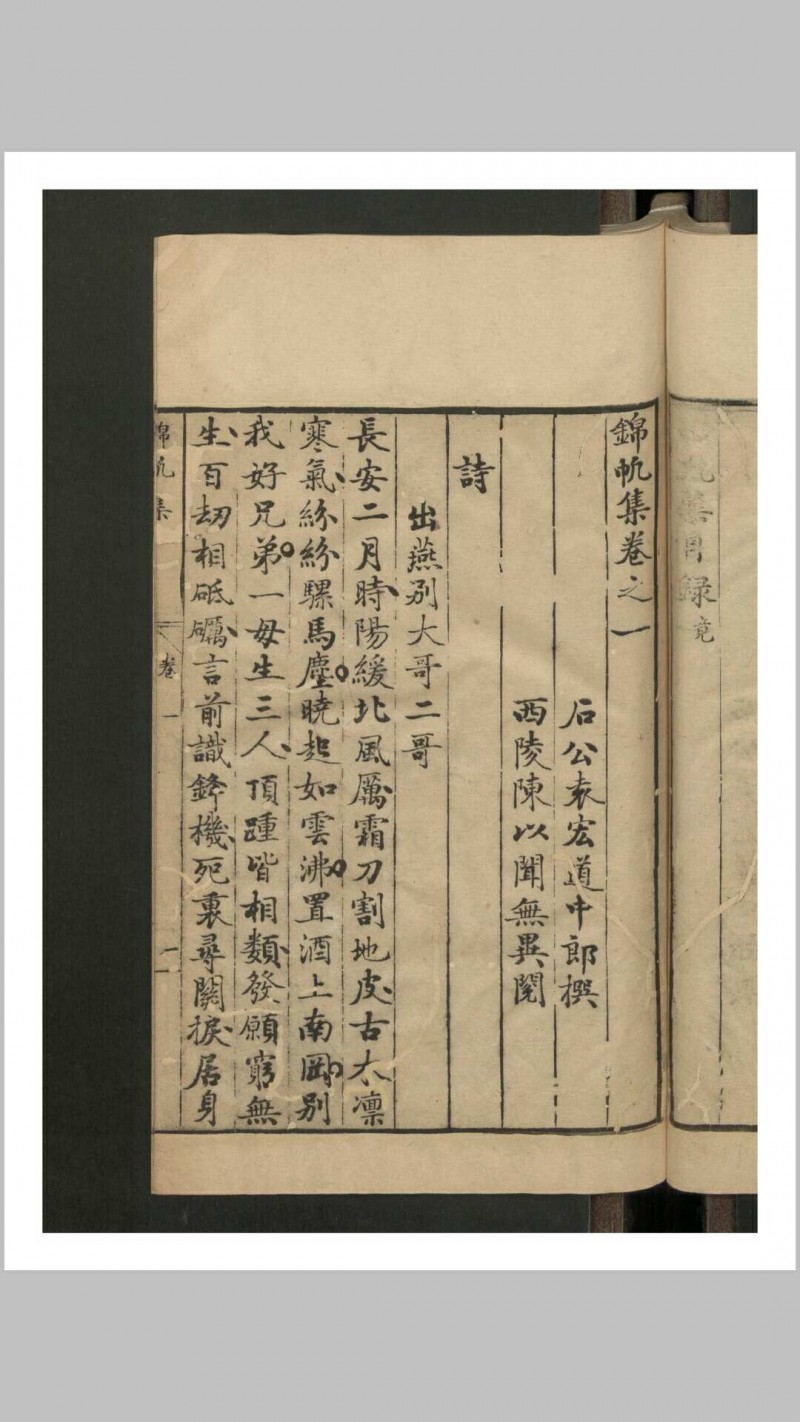 錦帆集卷之一
石公袁宏道中郎撰
西陵陳以聞無異閱
詩
出燕別大哥二哥
長安二月時陽緩北風厲霜刀割地皮古木凛
寒氣紛紛騾馬塵曉起如雲沸置酒上南岡別
我好兄弟一母生三人頂踵皆相類發願窮無
生百劫相砥礪言前識鋒機死裏尋關捩居身
錦帆集
卷一
一
目録竟